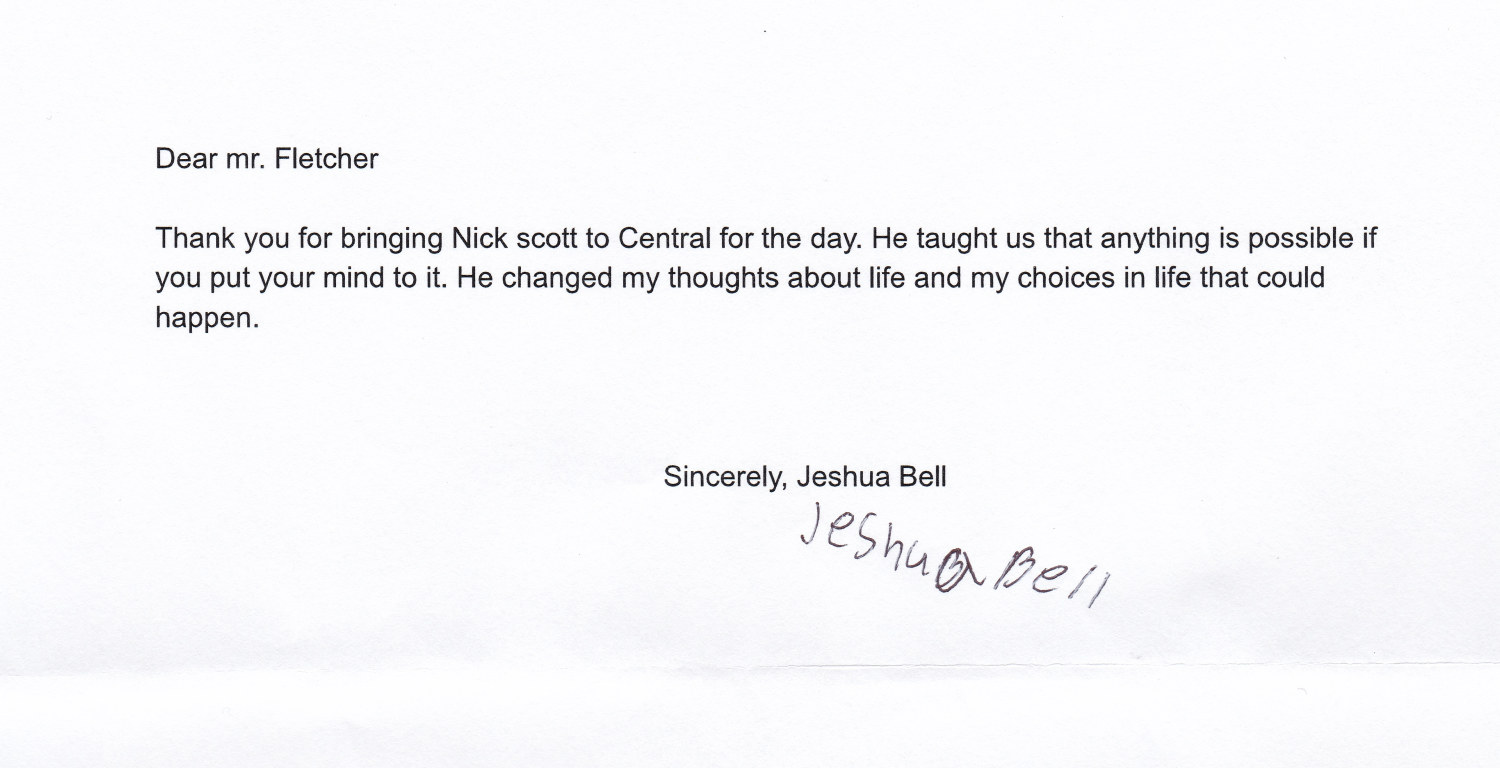 Dear mr. Fletcher
Thank you for bringing Nick scott to Central for the day. He taught us that anything is possible if
you put your mind to it. He changed my thoughts about life and my choices in life that could
happen.
Sincerely, Jeshua Bell
Jeshua Bell